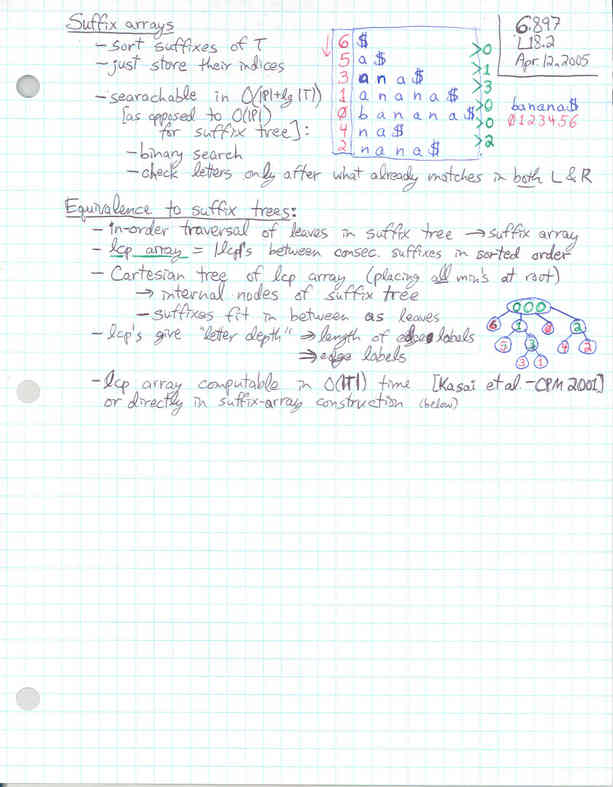 Suffix arrays
- sort suffixes of T
- just store their indices
- searachable in O(|P|+lg |T|)
[as opposed to O(|P|)
for suffix tree]:
- binary search
- check letters only after what already matches in both L & R
6 $
5 a $
3 a n a $
1 a n a n a $
0 b a n a n a $
4 n a $
2 n a n a $
>0
>1
>3
>0
>0
>2
6.897
L18.2
Apr. 12, 2005
banana$
0123456
Equivalence to suffix trees:
- in-order traversal of leaves in suffix tree → suffix array
- lcp array = |lcp|'s between consec. suffixes in sorted order
- Cartesian tree of lcp array (placing all min's at root)
→ internal nodes of suffix tree
- suffixes fit in between as leaves
- lcp's give "letter depth" ⇒ length of edge labels
⇒ edge labels
0 0 0
6 1 0 2
5 3 4 2
3 1
- lcp array computable in O(|T|) time [Kasai et al. - CPM 2001]
or directly in suffix-array construction (below)